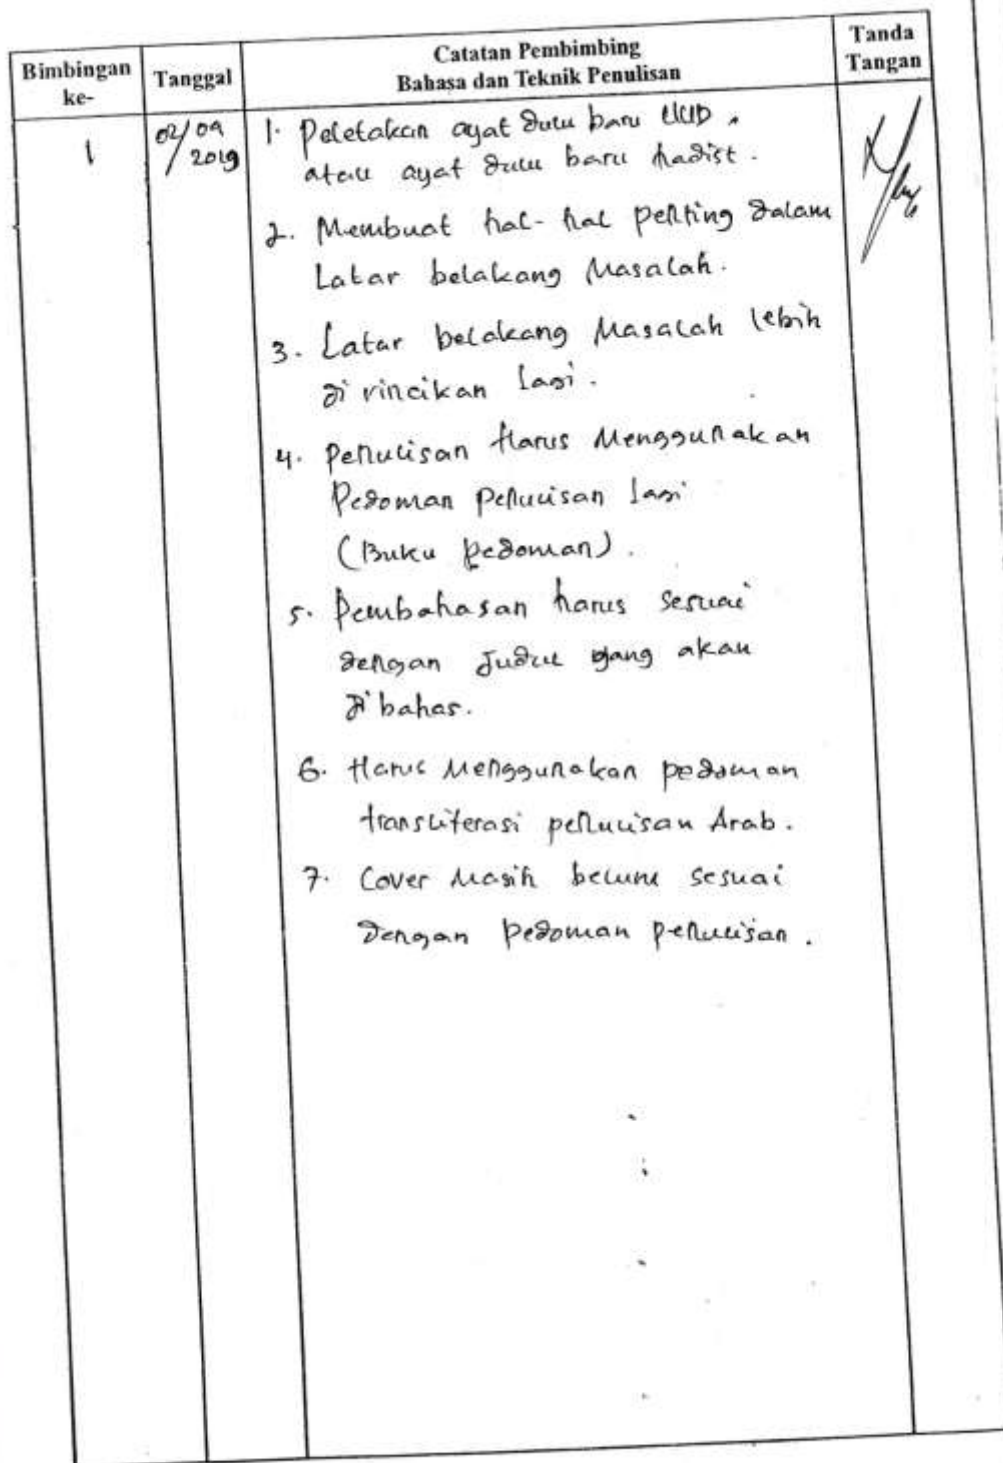 Bimbingan ke-
Tanggal
Catatan Pembimbing
Bahasa dan Teknik Penulisan
Tanda Tangan
1
02/09
2019
1. Peletakan ayat dulu baru UUD,
atau ayat dulu baru hadist.
2. Membuat hal-hal penting dalam
Latar belakang Masalah.
3. Latar belakang Masalah lebih
di rincikan lagi.
4. Penulisan Harus Menggunakan
Pedoman penulisan lagi
(Buku pedoman).
5. Pembahasan harus sesuai
dengan Judul yang akan
di bahas.
6. Harus Menggunakan pedoman
transliterasi penulisan Arab.
7. Cover Masih belum sesuai
dengan pedoman penulisan.